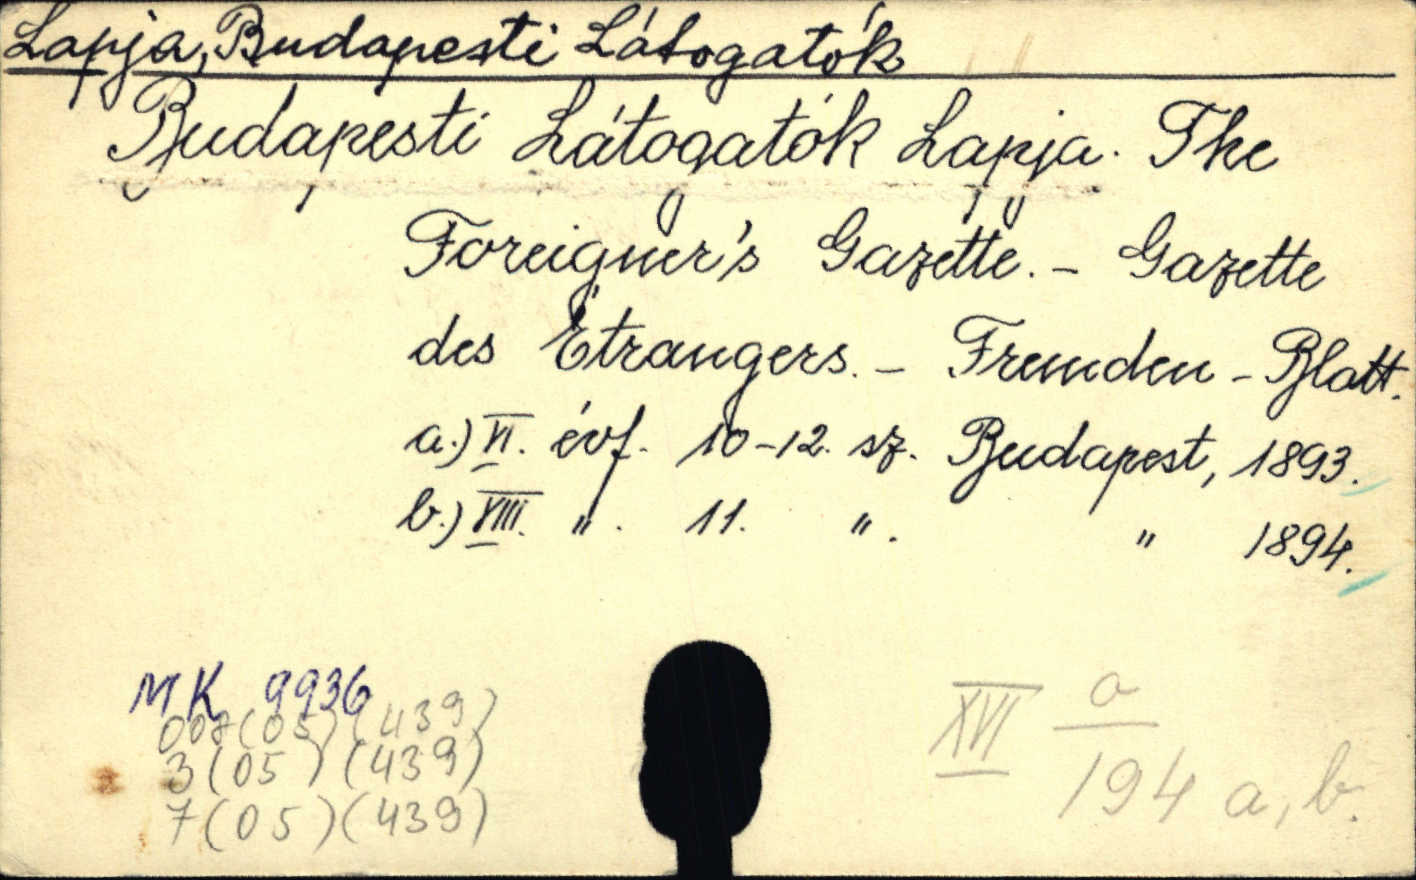 Lapja, Budapesti Látogatók
Budapesti Látogatók Lapja. The
Foreigner's Gazette. - Gazette
des Étrangers. - Fremden - Blatt.
a.) VI. évf. 10-12. sz. Budapest, 1893.
b.) VIII. " . 11. " . " 1894.
MK 9936
007(05)(439)
3(05)(439)
7(05)(439)
XVI a/194 a, b.